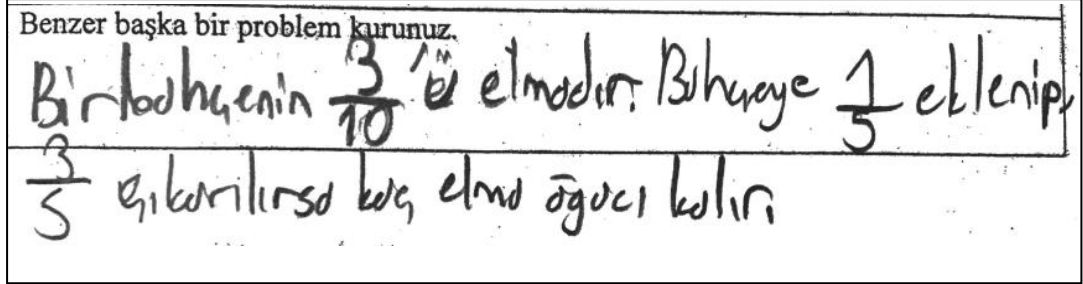 Benzer başka bir problem kurunuz.
Bir bahçenin 3/10 'ü elmadır. Bahçeye 1/5 eklenip,
3/5 çıkarılırsa kaç elma ağacı kalır.